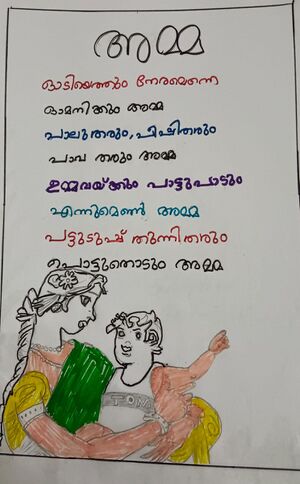 അമ്മ
ഓടിയെത്തും നേരമെന്നെ
ഓമനിക്കും അമ്മ
പാലുതരും, പീപ്പിതരും
പാവ തരും അമ്മ
ഉമ്മവയ്ക്കും പാട്ടുപാടും
എന്നുമെൺ അമ്മ
പട്ടുടുപ്പ് തുന്നിതരും
പൊട്ടുതൊടും അമ്മ
TOM